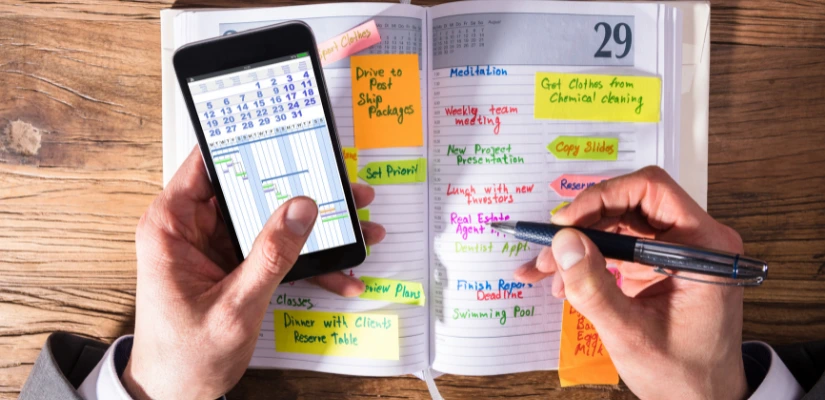 1 2 3 4
5 6 7 8 9 10 11
12 13 14 15 16 17 18
19 20 21 22 23 24 25
26 27 28 29 30 31
Clothes
Drive to
Post
Ship
Packages
Set
Plans
Classes
Dinner with Clients
Reserve Table
29
Meditation
Weekly team
meeting
New Project
Presentation
Lunch with new
Investors
Real Estate
Agent
Dentist Appt.
Finish Report
Deadline
Swimming Pool
Get Clothes from
Chemical cleaning
Copy Slides
Milk